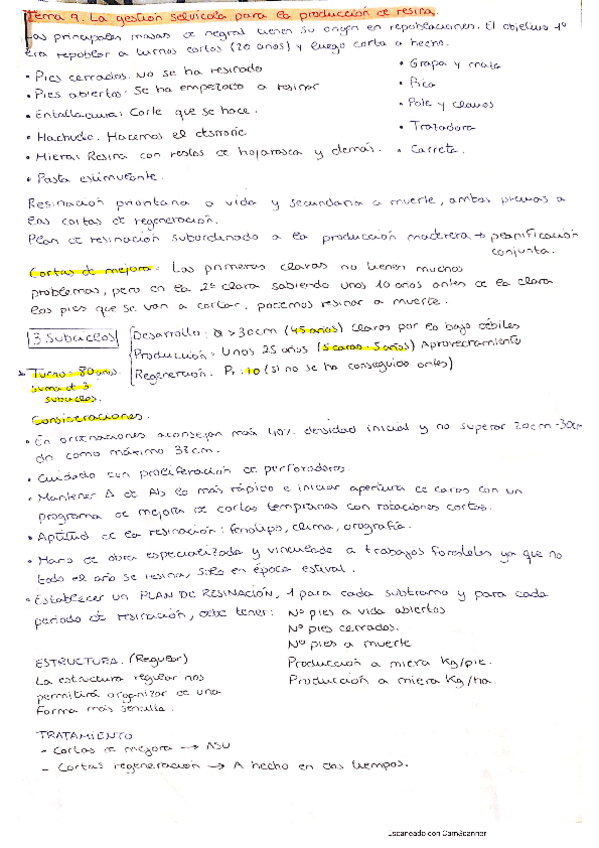 Tema 9. La gestión selvícola para la producción de resina.
Las principales masas de negral tienen su origen en repoblaciones. El objetivo 1º
era repoblar a turnos cortos (20 años) y luego corta a hecho.
• Pies cerrados. No se ha resinado
• Grapa y mata
• Pies abiertos. Se ha empezado a resinar
• Pica
• Entalladura: Corte que se hace.
• Pote y clavos
• Hachuelo. Hacemos el desroñe
• Trazadora
• Miera: Resina con restos de hojarasca y demás.
• Carreta.
• Pasta estimulante.
Resinación prioritaria a vida y secundaria a muerte, ambas previas a
las cortas de regeneración.
Plan de resinación subordinado a la producción maderera → planificación
conjunta.
Cortas de mejora: Las primeras claras no tienen muchos
problemas, pero en la 2ª clara sabiendo unos 10 años antes de la clara
los pies que se van a cortar, podemos resinar a muerte.
3 Subciclos
Desarrollo: Ø > 30cm (45 años) claras por lo bajo débiles
Producción: Unos 25 años (5 caras - 5 años) Aprovechamiento
Regeneración. Pr: 10 (si no se ha conseguido antes)
Turno: 80 años
Suma de 3
subciclos.
Consideraciones.
• En ordenaciones aconsejan más 40% densidad inicial y no superar 20cm-30cm
dn como máximo 38cm.
• Cuidado con proliferación de perforadores.
• Mantener Δ de Als lo más rápido e iniciar apertura de caras con un
programa de mejora de cortas tempranas con rotaciones cortas.
• Aptitud de la resinación: fenotipo, clima, orografía.
• Mano de obra especializada y vinculada a trabajos forestales ya que no
todo el año se resina, sólo en época estival.
• Establecer un PLAN DE RESINACIÓN, 1 para cada subtramo y para cada
periodo de resinación, debe tener:
Nº pies a vida abiertos
Nº pies cerrados.
Nº pies a muerte
Producción a miera Kg/pie.
Producción a miera Kg/ha.
ESTRUCTURA. (Regular)
La estructura regular nos
permitirá organizar de una
forma más sencilla.
TRATAMIENTO
- Cortas de mejora → ASU
- Cortas regeneración → A hecho en dos tiempos.
Escaneado con CamScanner